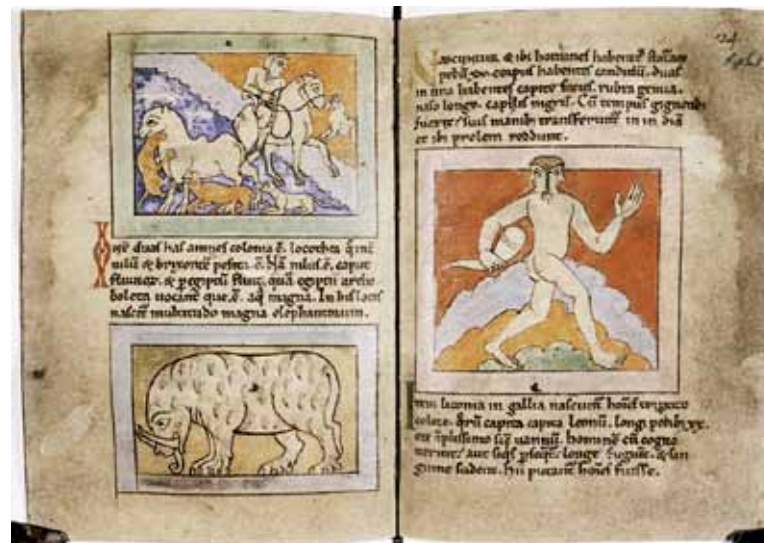 Int̄ duas has amnes colonia ē. locotheo q̄ int̄
nilū & brixontē posita ē. Nā nilus ē. caput
fluuior̄. & p egiptū fluit. quā egiptii archo
boleta uocant que ē. aq̄ magna. In his locis
nascit̄ multitudo magna elephantorum.
Nascuntur & ibi homines habentes staturā
pedū .xv. corpus habentes candidū. duas
in una habentes capite facies. rubra genua.
naso longo. capillis nigris. Cū tempus gignendi
fuerit. suis manib; transferunt̄ in indiā
et ibi prolem reddunt.
Item liconia in gallia nascunt̄ hoīes tripartito
colore. quor̄ capita capita leonū. longi pedib; xx.
ore āplissimo sic̄ uannū. hominē cū cogno
uerint. aut siq̄s p̄seq̄t̄. longe fugiunt. & san
guine sudant. Hii putant̄ hoīes fuisse.